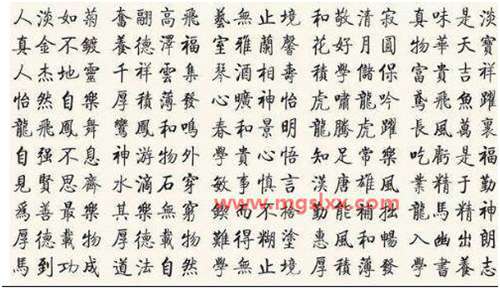 人淡如菊 奮翮高飛 藝無止境 和敬清寂 真味是淡
真金不鍍 養德澤福 室雅蘭馨 花好月圓 物華天寶
人杰地靈 千祥雲集 琴酒相壽 學儲 富貴吉祥
怡然自樂 厚積薄發 心曠神怡 虎嘯龍吟 鳶飛魚躍
龍飛鳳舞 鸞鳳和鳴 春和景明 龍騰虎躍 長風萬裏
自强不息 神游物外 學貴心悟 知足常樂 吃虧是福
見賢思齊 水滴石穿 敏事慎言 漢唐雄風 業精于勤
爲善最樂 其樂無窮 鍥而不舍 勤能補拙 龍馬精神
厚德載物 厚德載物 難得糊塗 惠風和暢 入幽出朗
馬到功成 道法自然 學無止境 厚積薄發 學書養志
www.mgslxx.com